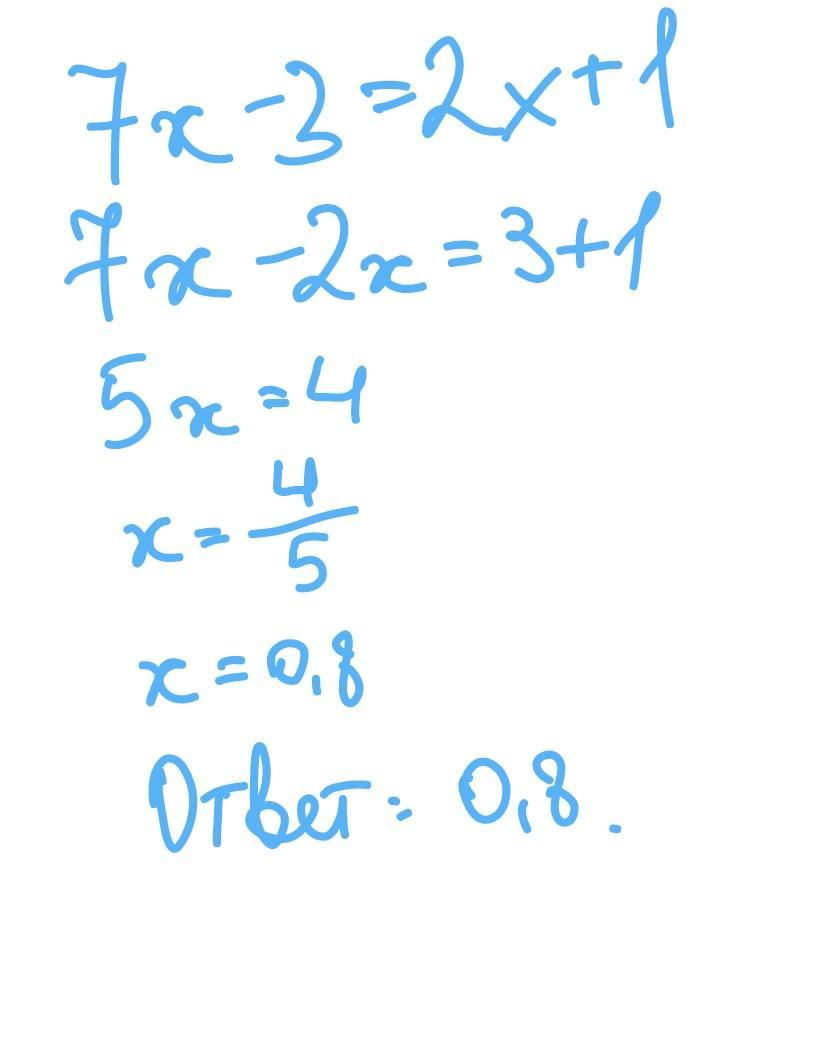 7x - 3 = 2x + 1
7x - 2x = 3 + 1
5x = 4
x = 4/5
x = 0,8
Ответ: 0,8.